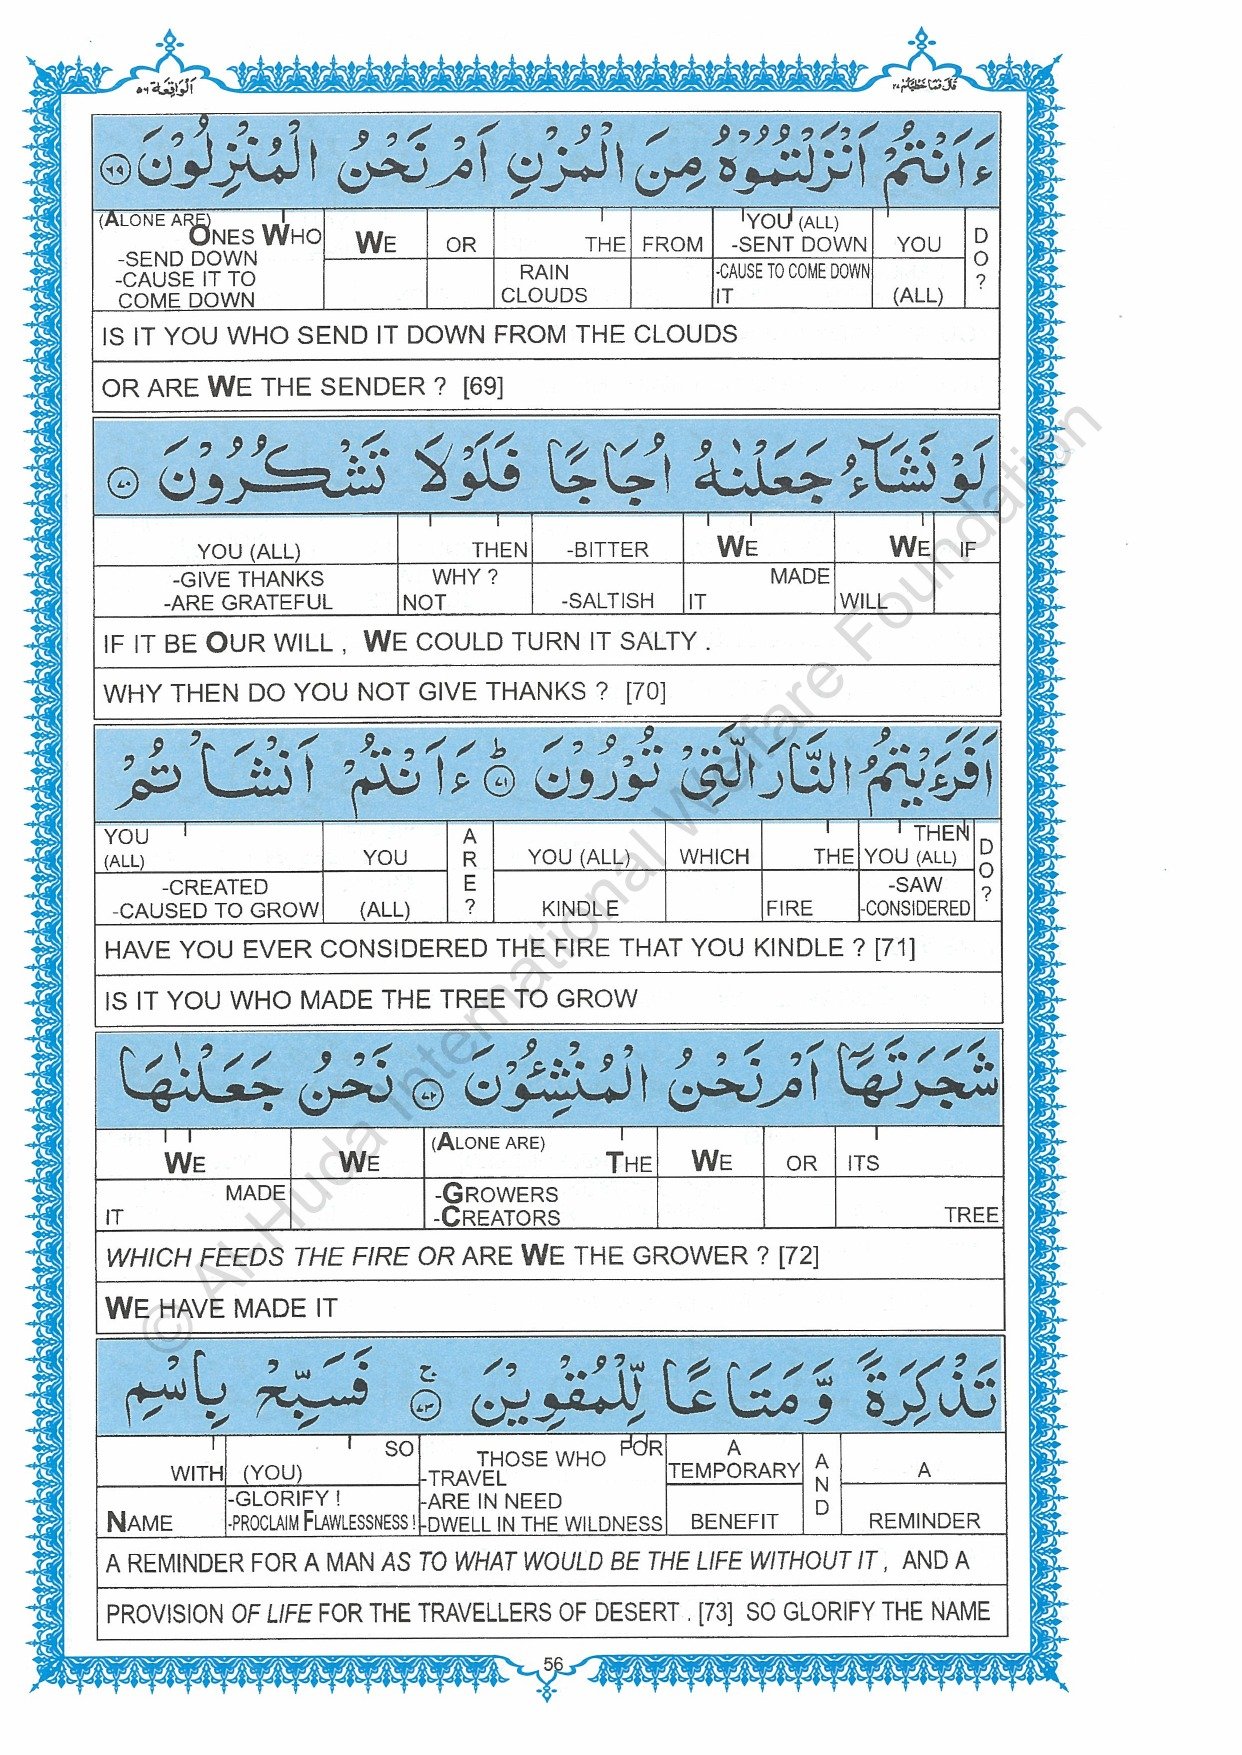 الواقعة ٥٦
قال فما خطبكم ٢٧
ءَاَنْتُمْ اَنْزَلْتُمُوْهُ مِنَ الْمُزْنِ اَمْ نَحْنُ الْمُنْزِلُوْنَ ٦٩
(ALONE ARE) ONES WHO -SEND DOWN -CAUSE IT TO COME DOWN | WE | OR | THE RAIN CLOUDS | FROM | YOU (ALL) -SENT DOWN -CAUSE TO COME DOWN IT | YOU (ALL) | DO?
IS IT YOU WHO SEND IT DOWN FROM THE CLOUDS
OR ARE WE THE SENDER ? [69]
لَوْ نَشَآءُ جَعَلْنٰهُ اُجَاجًا فَلَوْلَا تَشْكُرُوْنَ ٧٠
YOU (ALL) -GIVE THANKS -ARE GRATEFUL | THEN WHY ? NOT | -BITTER -SALTISH | WE MADE IT | WE WILL | IF
IF IT BE OUR WILL , WE COULD TURN IT SALTY .
WHY THEN DO YOU NOT GIVE THANKS ? [70]
اَفَرَءَيْتُمُ النَّارَ الَّتِيْ تُوْرُوْنَ ؕ ٧١ ءَاَنْتُمْ اَنْشَاْتُمْ
YOU (ALL) -CREATED -CAUSED TO GROW | YOU (ALL) | ARE? | YOU (ALL) KINDLE | WHICH | THE FIRE | THEN YOU (ALL) -SAW -CONSIDERED | DO?
HAVE YOU EVER CONSIDERED THE FIRE THAT YOU KINDLE ? [71]
IS IT YOU WHO MADE THE TREE TO GROW
شَجَرَتَهَآ اَمْ نَحْنُ الْمُنْشِـُٔوْنَ ٧٢ نَحْنُ جَعَلْنٰهَا
WE MADE IT | WE | (ALONE ARE) THE -GROWERS -CREATORS | WE | OR | ITS TREE
WHICH FEEDS THE FIRE OR ARE WE THE GROWER ? [72]
WE HAVE MADE IT
تَذْكِرَةً وَّمَتَاعًا لِّلْمُقْوِيْنَ ۚ ٧٣ فَسَبِّحْ بِاسْمِ
WITH NAME | SO (YOU) -GLORIFY ! -PROCLAIM FLAWLESSNESS ! | FOR THOSE WHO -TRAVEL -ARE IN NEED -DWELL IN THE WILDNESS | A TEMPORARY BENEFIT | AND | A REMINDER
A REMINDER FOR A MAN AS TO WHAT WOULD BE THE LIFE WITHOUT IT , AND A
PROVISION OF LIFE FOR THE TRAVELLERS OF DESERT . [73] SO GLORIFY THE NAME
56
© Al-Huda International Welfare Foundation